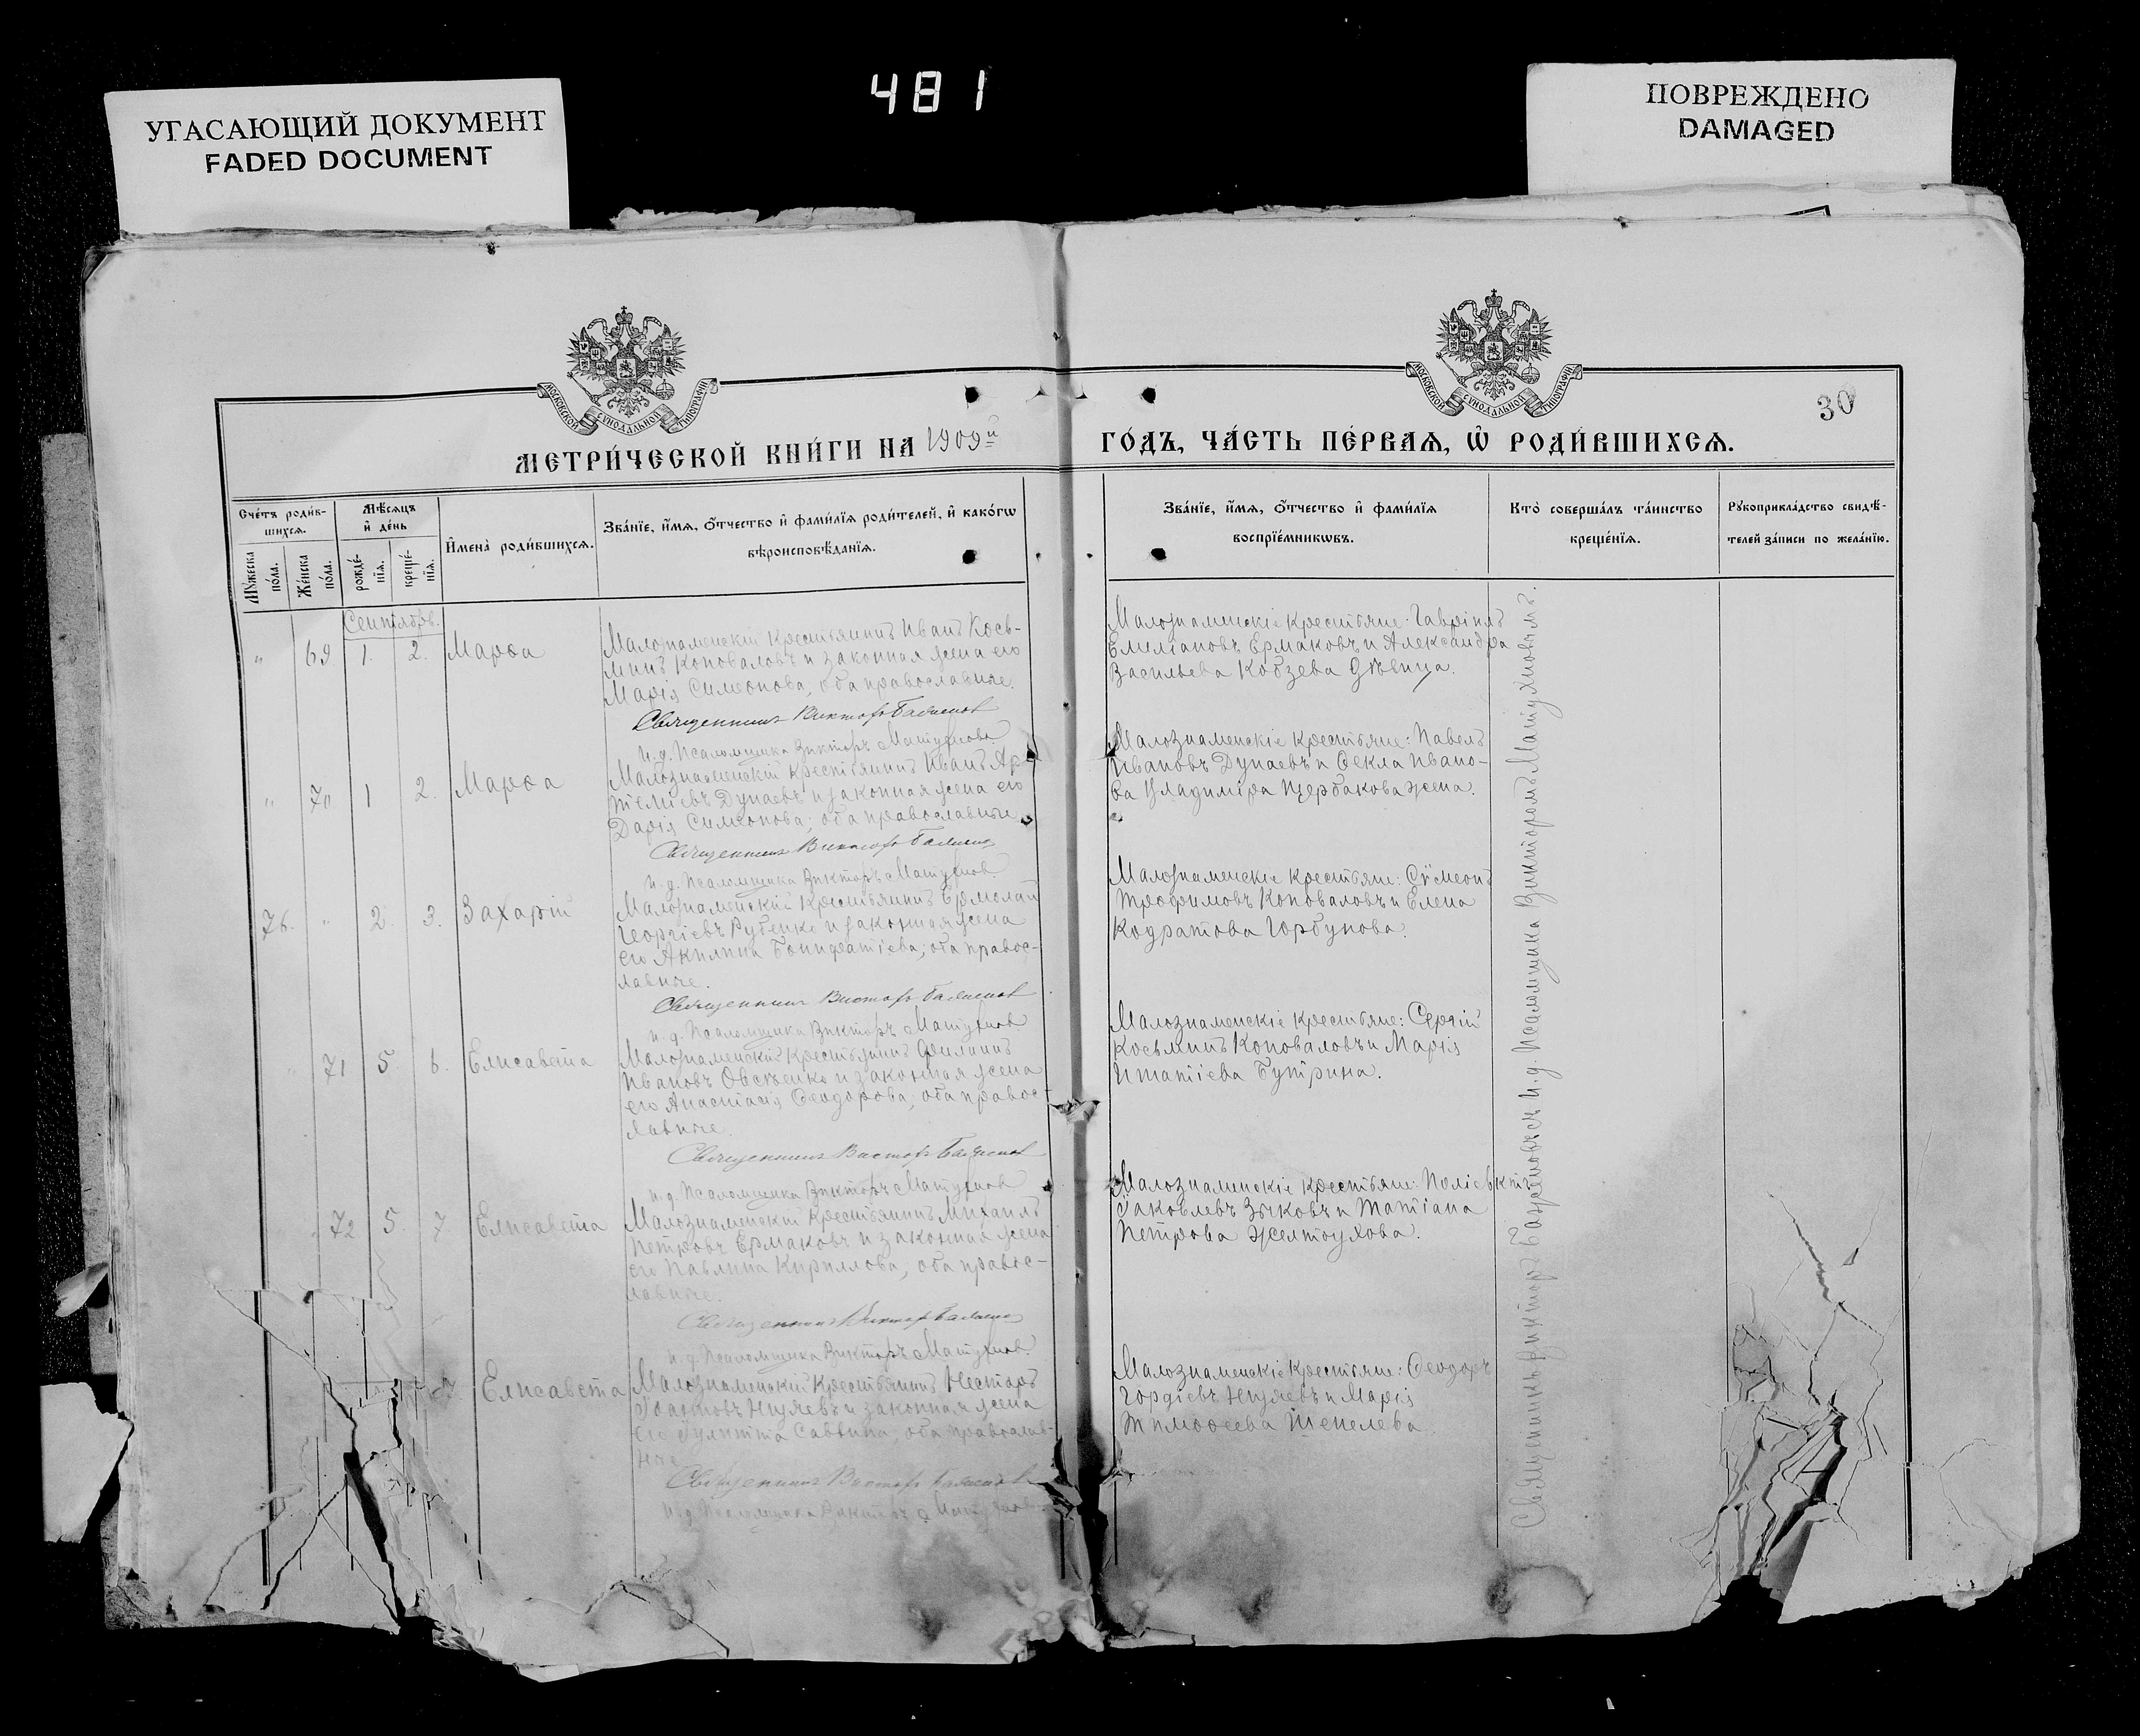 481
УГАСАЮЩИЙ ДОКУМЕНТ
FADED DOCUMENT
ПОВРЕЖДЕНО
DAMAGED
МОСКОВСКОЙ СУНОДАЛЬНОЙ ТИПОГРАФІИ
МОСКОВСКОЙ СУНОДАЛЬНОЙ ТИПОГРАФІИ
30
МЕТРИ́ЧЕСКОЙ КНИ́ГИ НА 1909й ГО́ДЪ, ЧА́СТЬ ПЕ́РВАѦ, Ѡ҆ РОДИ́ВШИХСѦ.
Сче́тъ роди́в-
шихсѧ.
Мꙋ́жеска
по́ла.
Же́нска
по́ла.
Мѣ́сѧцъ
и҆ де́нь
рожде́-
нїѧ.
креще́-
нїѧ.
И҆мена̀ роди́вшихсѧ.
Зва́нїе, и҆́мѧ, ѻ҆́тчество и҆ фами́лїѧ роди́телей, и҆ како́гѡ
вѣроисповѣ́данїѧ.
Зва́нїе, и҆́мѧ, ѻ҆́тчество и҆ фами́лїѧ
воспрїе́мникѡвъ.
Кто̀ соверша́лъ та́инство
креще́нїѧ.
Рꙋкоприкла́дство свидѣ́-
телей за́писи по жела́нїю.
Сентябрь.
" 69 1. 2. Марѳа
Малознаменскій крестьянинъ Иванъ Кось-
минъ Коноваловъ и законная жена его
Марія Симеонова, оба православные.
Священникъ Викторъ
и. д. Псаломщика Викторъ Матухнов
Малознаменскіе крестьяне: Гавріилъ
Емеліановъ Ермаковъ и Александра
Васильева Кобзева дѣвица.
" 70 1 2. Марѳа
Малознаменскій крестьянинъ Иванъ Ар-
темьевъ Дунаевъ и законная жена его
Дарія Симеонова; оба православные
Священникъ Викторъ
и. д. Псаломщика Викторъ Матухнов
Малознаменскіе крестьяне: Павелъ
Ивановъ Дунаевъ и Ѳекла Ивано-
ва Владиміра Щербакова жена.
76. " 2. 3. Захарій
Малознаменскій крестьянинъ Ермолай
Георгіевъ Рубенко и законная жена
его Акилина Бонифатіева; оба правос-
лавные.
Священникъ Викторъ
и. д. Псаломщика Викторъ Матухнов
Малознаменскіе крестьяне: Сѵмеонъ
Трофимовъ Коноваловъ и Елена
Кодратова Горбунова.
" 71 5. 6. Елисавета
Малознаменскій крестьянинъ Филиппъ
Ивановъ Овсѣенко и законная жена
его Анастасія Ѳеодорова; оба правос-
лавные.
Священникъ Викторъ
и. д. Псаломщика Викторъ Матухнов
Малознаменскіе крестьяне: Сергій
Косьминъ Коноваловъ и Марія
Ипатіева Бутрина.
72 5. 7 Елисавета
Малознаменскій крестьянинъ Михаилъ
Петровъ Ермаковъ и законная жена
его Павлина Кириллова, оба правос-
лавные.
Священникъ Викторъ
и. д. Псаломщика Викторъ Матухнов
Малознаменскіе крестьяне: Поліевктъ
Іаковлевъ Зыковъ и Татіана
Петрова Желтоухова.
Елисавета
Малознаменскій крестьянинъ Несторъ
законная жена
его Іулитта Саввина, оба православ-
ные
Священникъ Викторъ
и. д. Псаломщика Викторъ Матухнов
Малознаменскіе крестьяне: Ѳеодоръ
Гордіевъ и Марія
Тимоѳеева Шепелева
Священникъ Викторъ съ и. д. Псаломщика Викторомъ Матухновымъ.